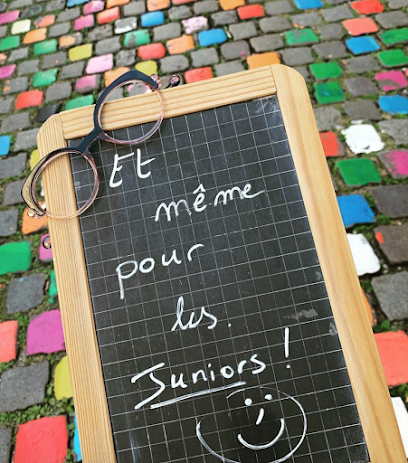 Et
même
pour
les.
Juniors !